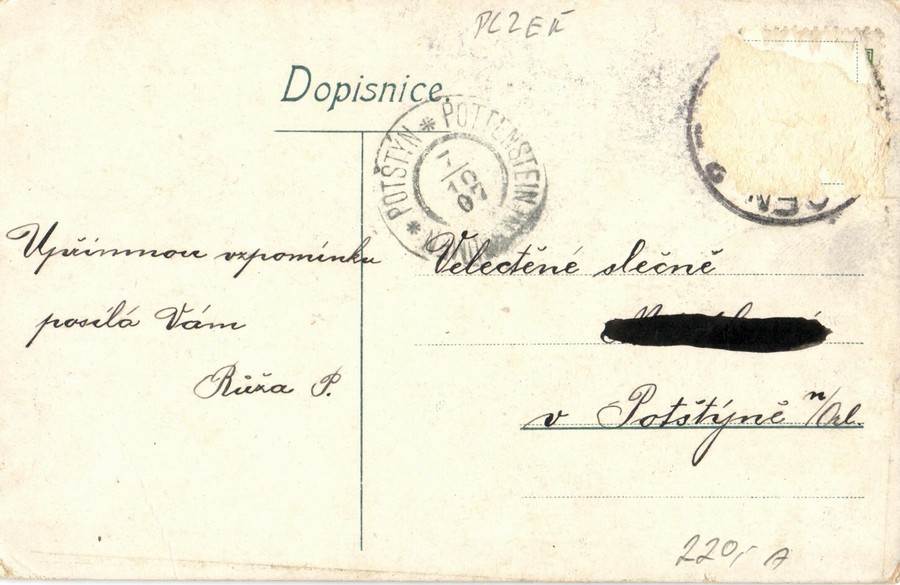 PLZEŇ
Dopisnice.
* POTŠTÝN * POTTENSTEIN
Upřímnou vzpomínku
posílá Vám
Růža P.
Velectěné slečně
v Potštýně n/Orl.
220,- A